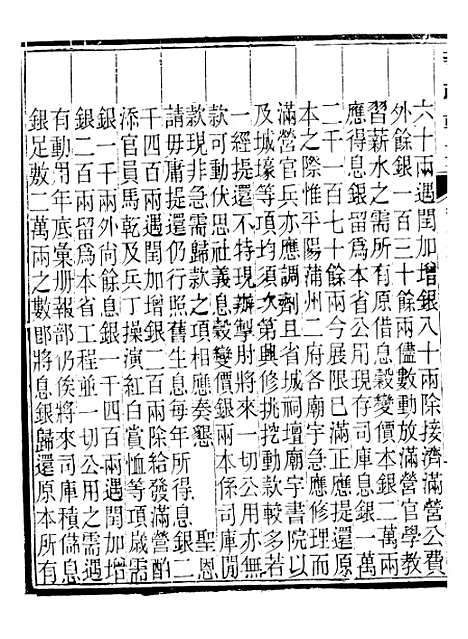 六十兩遇閏加增銀八十兩除接濟滿營公費
外餘銀一百三十餘兩儘數動放滿營官學教
習薪水之需所有原借息穀變價本銀二萬兩
應得息銀留為本省公用現存司庫息銀一萬
二千一百七十餘兩今展限已滿正應提還原
本之際惟平陽蒲州二府各廟宇急應修理而
滿營官兵亦應調劑且省城祠壇廟宇書院以
及城壕等項均須次第興修挑挖動款較多若
一經提還不特現辦掣肘將來一切公用亦無
款可動伏思社義息穀變價銀二萬兩本係司庫閒
款現非急需歸款之項相應奏懇　聖恩
請毋庸提還仍行照舊生息每年所得息銀二
千四百兩遇閏加增銀二百兩除給發滿營酌
添官員馬乾及兵丁操演紅白賞恤等項歲需
銀一千兩外尚餘息銀一千四百兩遇閏加增
銀二百兩留為本省工程並一切公用之需遇
有動用年底彙册報部仍俟將來司庫積儲息
銀足數二萬兩之數即將息銀歸還原本所有